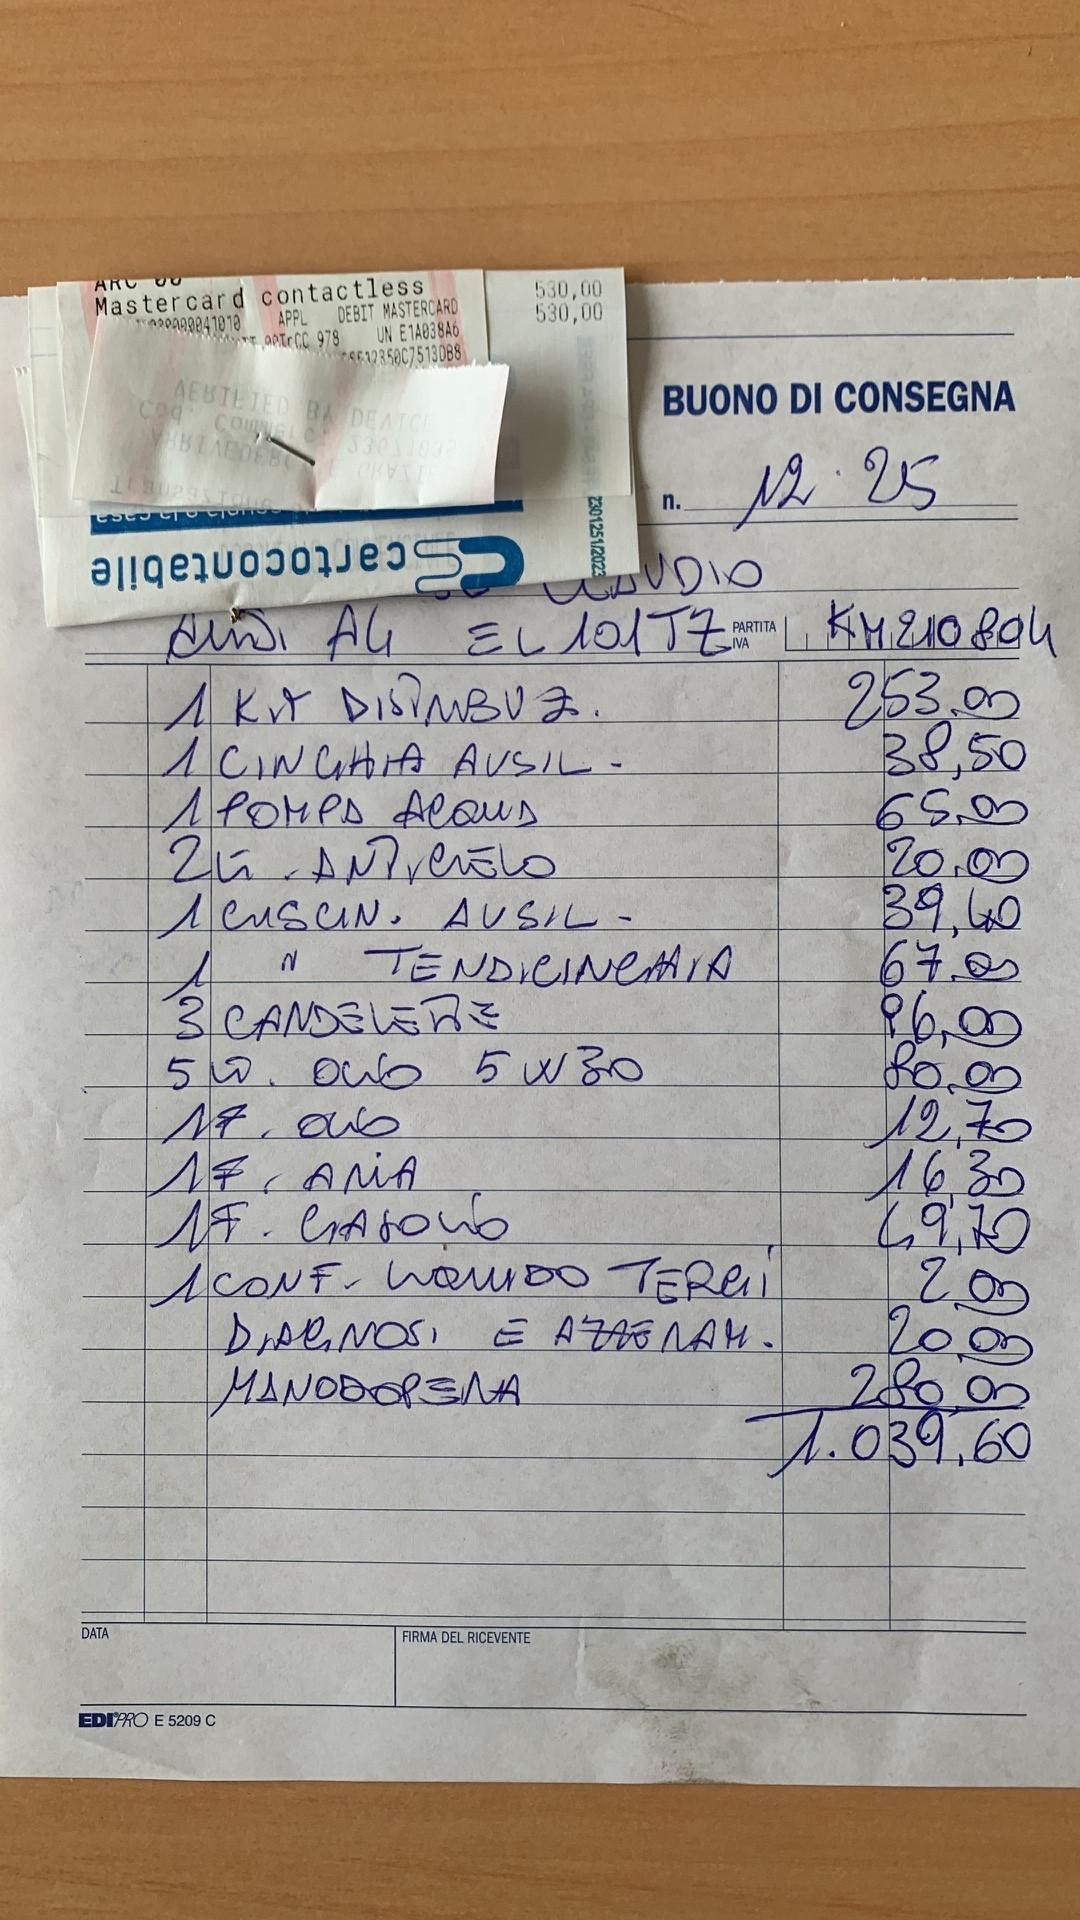 ARC 00
Mastercard contactless
530,00
530,00
APPL DEBIT MASTERCARD
978 UN E1A038A6
VERIFIED BY DEVICE
Transazione
cartocontabile
BUONO DI CONSEGNA
n. 12.25
CLAUDIO
AUDI A4 EL 101TZ PARTITA IVA KM210804
1 KIT DISTRIBUZ. 253.00
1 CINGHIA AUSIL - 38,50
1 POMPA ACQUA 65.00
2 LT. ANTICIELO 20.00
1 CUSCIN. AUSIL - 39,40
1 " TENDICINGHIA 67.00
3 CANDELETTE 96,00
5 LT. OLIO 5W30 80.00
1 F. OLIO 12,70
1 F. ARIA 16,30
1 F. GASOLIO 49,70
1 CONF. LIQUIDO TERGI 2.00
DIAGNOSI E AZZERAM. 20.00
MANODOPERA 280,00
1.039,60
DATA
FIRMA DEL RICEVENTE
EDIPRO E 5209 C